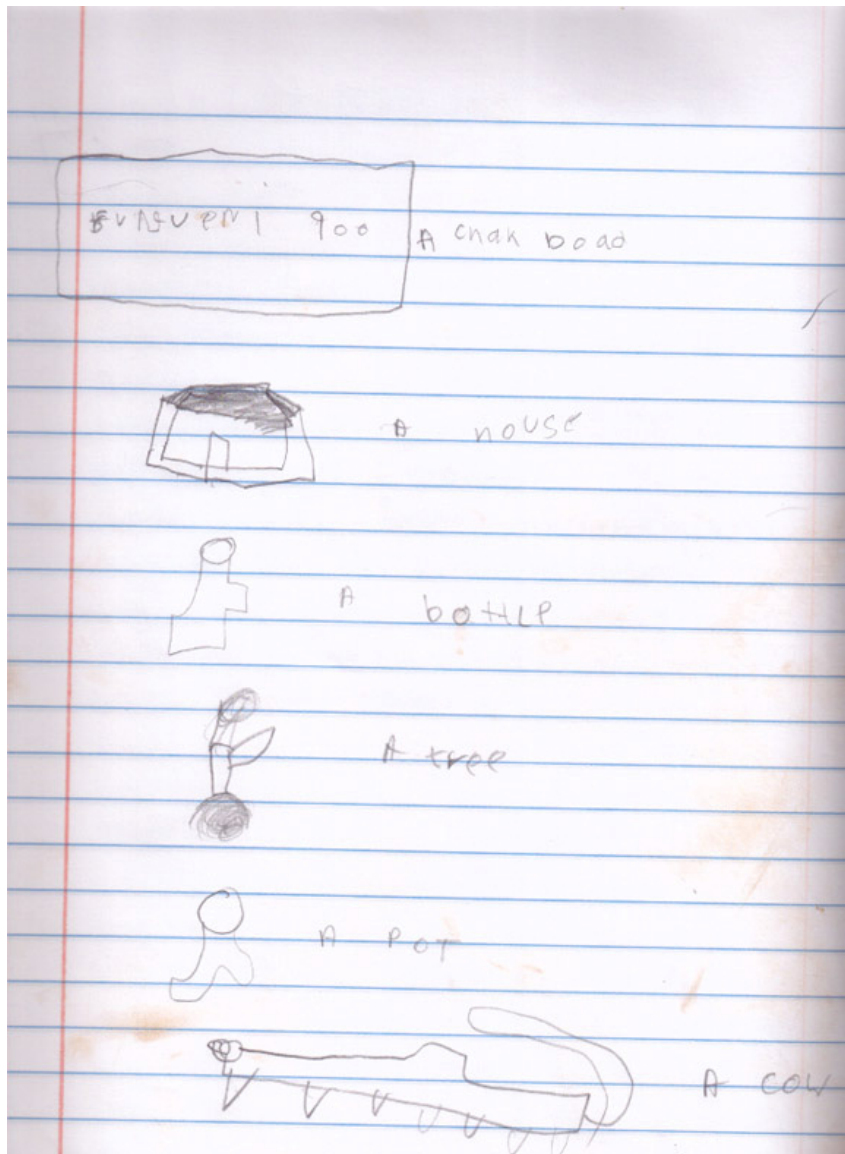 900 A chak boad
A house
A bottle
A tree
A pot
A cow